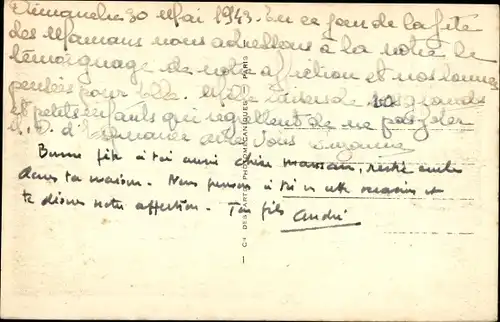 Dimanche 30 Mai 1943. En ce jour de la fête
des Mamans nous adressons à la notre le
témoignage de notre affection et nos bonnes
pensées pour Elle. Mille baisers de vos grands
et petits enfants qui regrettent de ne pas
avec Vous Suzanne
Bonne fête à toi aussi chère maman, restée seule
dans ta maison. Nous pensons à toi en cette occasion et
te disons notre affection. Ton fils André
Cie DES ARTS PHOTOMECANIQUES PARIS